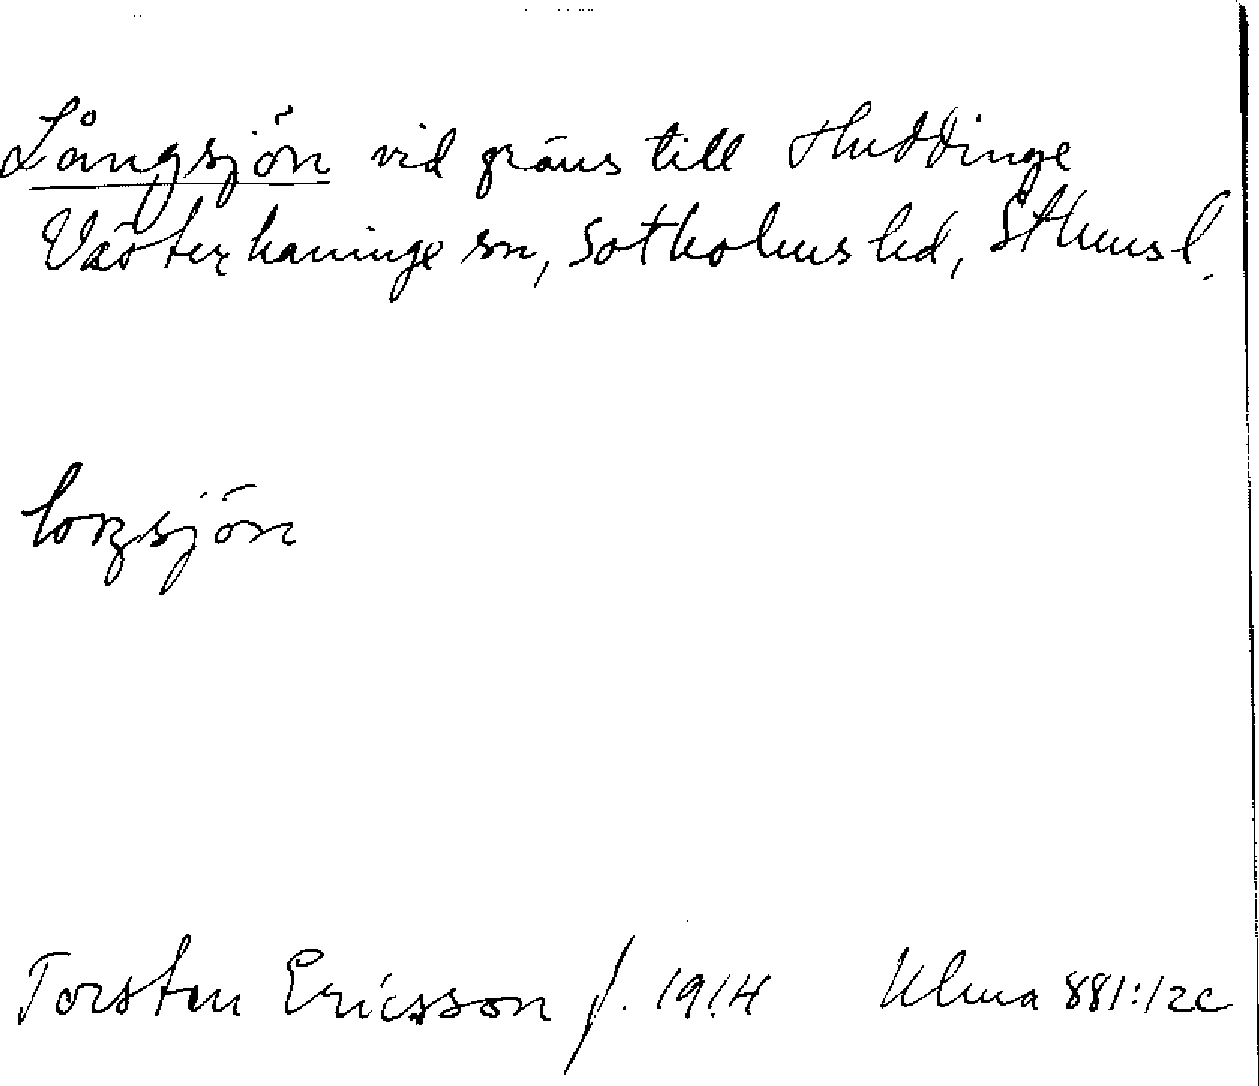 Långsjön vid gräns till Huddinge
Västerhaninge sn, Sotholms hd, Sthms l.
loŋsjön
Torsten Ericsson f. 1914 Ulma 881:12c